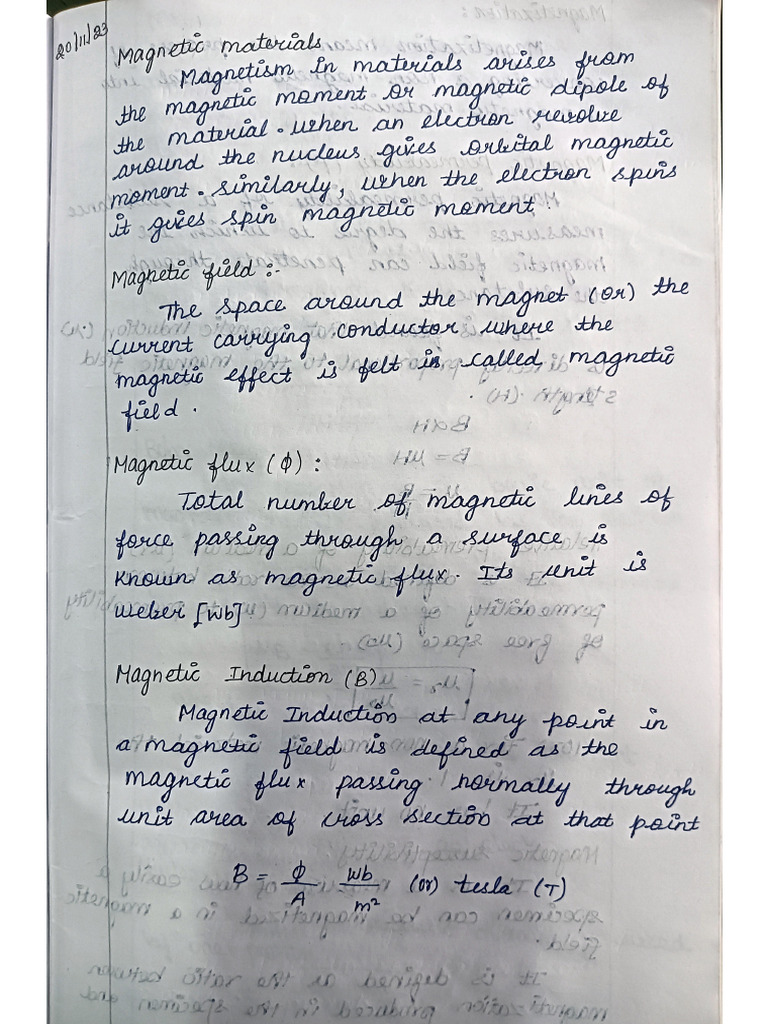 20/11/23
Magnetic materials
Magnetism in materials arises from
the magnetic moment or magnetic dipole of
the material. when an electron revolve
around the nucleus gives orbital magnetic
moment. similarly, when the electron spins
it gives spin magnetic moment.
Magnetic field :-
The space around the magnet (or) the
current carrying conductor where the
magnetic effect is felt is called magnetic
field.
Magnetic flux (ϕ) :
Total number of magnetic lines of
force passing through a surface is
known as magnetic flux. Its unit is
weber [wb]
Magnetic Induction (B)
Magnetic Induction at any point in
a magnetic field is defined as the
magnetic flux passing normally through
unit area of cross section at that point
B = ϕ/A wb/m² (or) tesla (T)